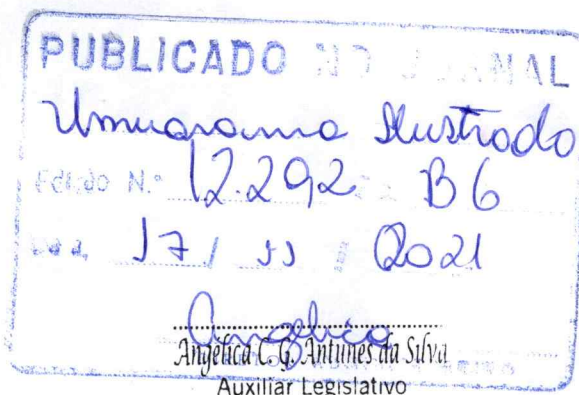 PUBLICADO NO JORNAL
Umuarama Ilustrado
Edição N.º 12.292 B6
17 / 11 / 2021
Angélica
Angélica C. G. Antunes da Silva
Auxiliar Legislativo